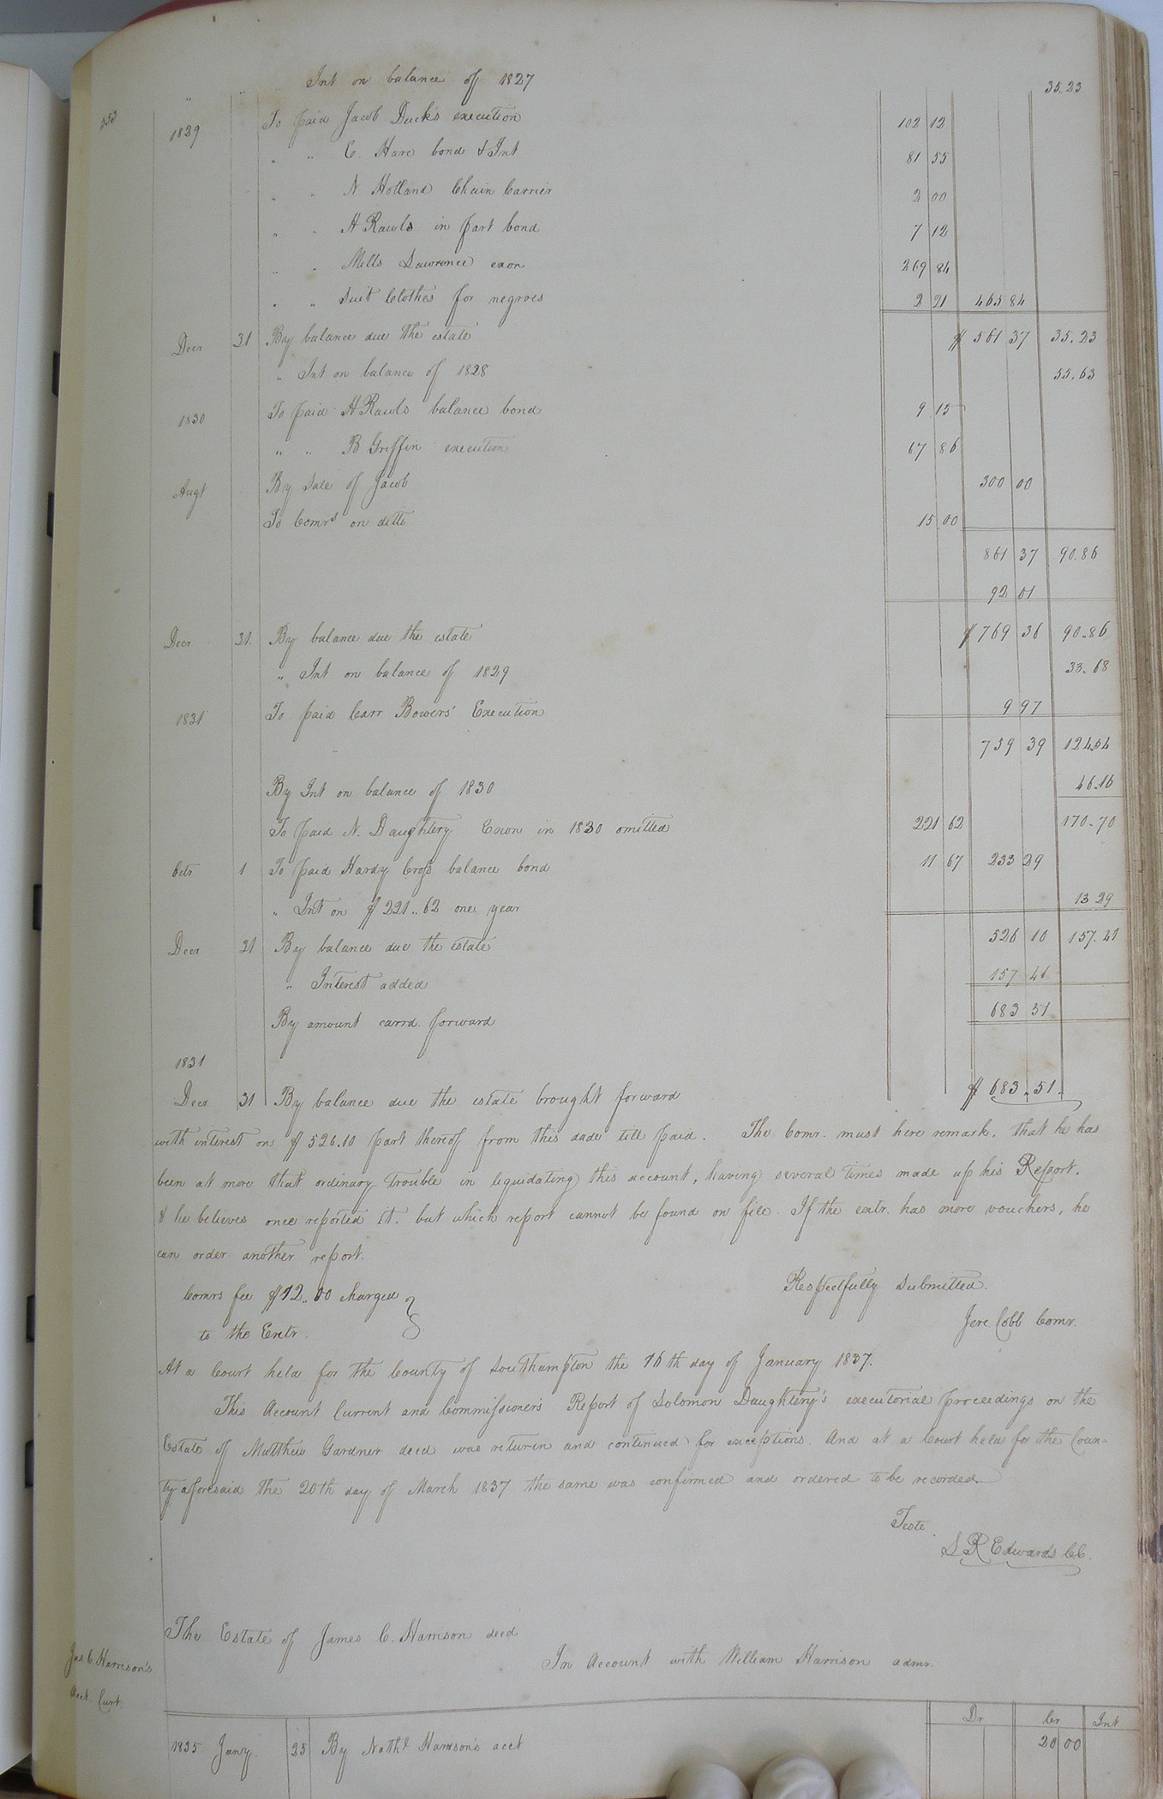 " " Int on balance of 1827 35.23
253
1829 To paid Jacob Duck's execution 102 12
" " E. Hare bond & Int 81 55
" " N Holland Chain Carrier 2 00
" " H Rawls in part bond 7 12
" " Mills Lawrence exon 269 84
" " Suit Clothes for negroes 2 21 465 84
Decr 31 By balance due the estate $ 561 37 35.23
" Int on balance of 1828 55.63
1830 To paid H Rawls balance bond 9 15
" " B Griffin execution 67 86
Augt By Sale of Jacob 300 00
To Comrs on ditto 15 00
861 37 90.86
92 01
Decr 31 By balance due the estate $ 769 36 90.86
" Int on balance of 1829 33.68
1831 To paid Carr Bowers' Execution 9 97
759 39 124.54
By Int on balance of 1830 46.16
To paid N. Daughtery Exon in 1830 omitted 221 62 170.70
Octr 1 To paid Hardy Cross balance bond 11 67 233 29
" Int on $ 221..62 one year 13 29
Decr 31 By balance due the estate 526 10 157.41
" Interest added 157 41
By amount carrd. forward 683 51
1831
Decr 31 By balance due the estate brought forward $ 683.51.
with interest on $ 526.10 part thereof from this date till paid. The Comr. must here remark, that he has
been at more that ordinary trouble in liquidating this account, having several times made up his Report.
& he believes once reported it. but which report cannot be found on file. If the exetr. has more vouchers, he
can order another report.
Comrs fee $12..00 charged
to the Exetr. Respectfully Submitted.
Jere Cobb Comr.
At a Court held for the County of Southampton the 16th day of January 1837.
This Account Current and Commissioners Report of Solomon Daughtery's executorial proceedings on the
Estate of Matthew Gardner decd was return and continued for exceptions. And at a Court held for the Coun-
ty aforesaid the 20th day of March 1837 the same was confirmed and ordered to be recorded
Teste.
L R Edwards C.C.
The Estate of James C. Harrison decd
In Account with William Harrison admr.
Jas C. Harrison's
Acct Curt.
Dr Cr Int
1835 Jany. 25 By Nathl Harrison's acct 20 00